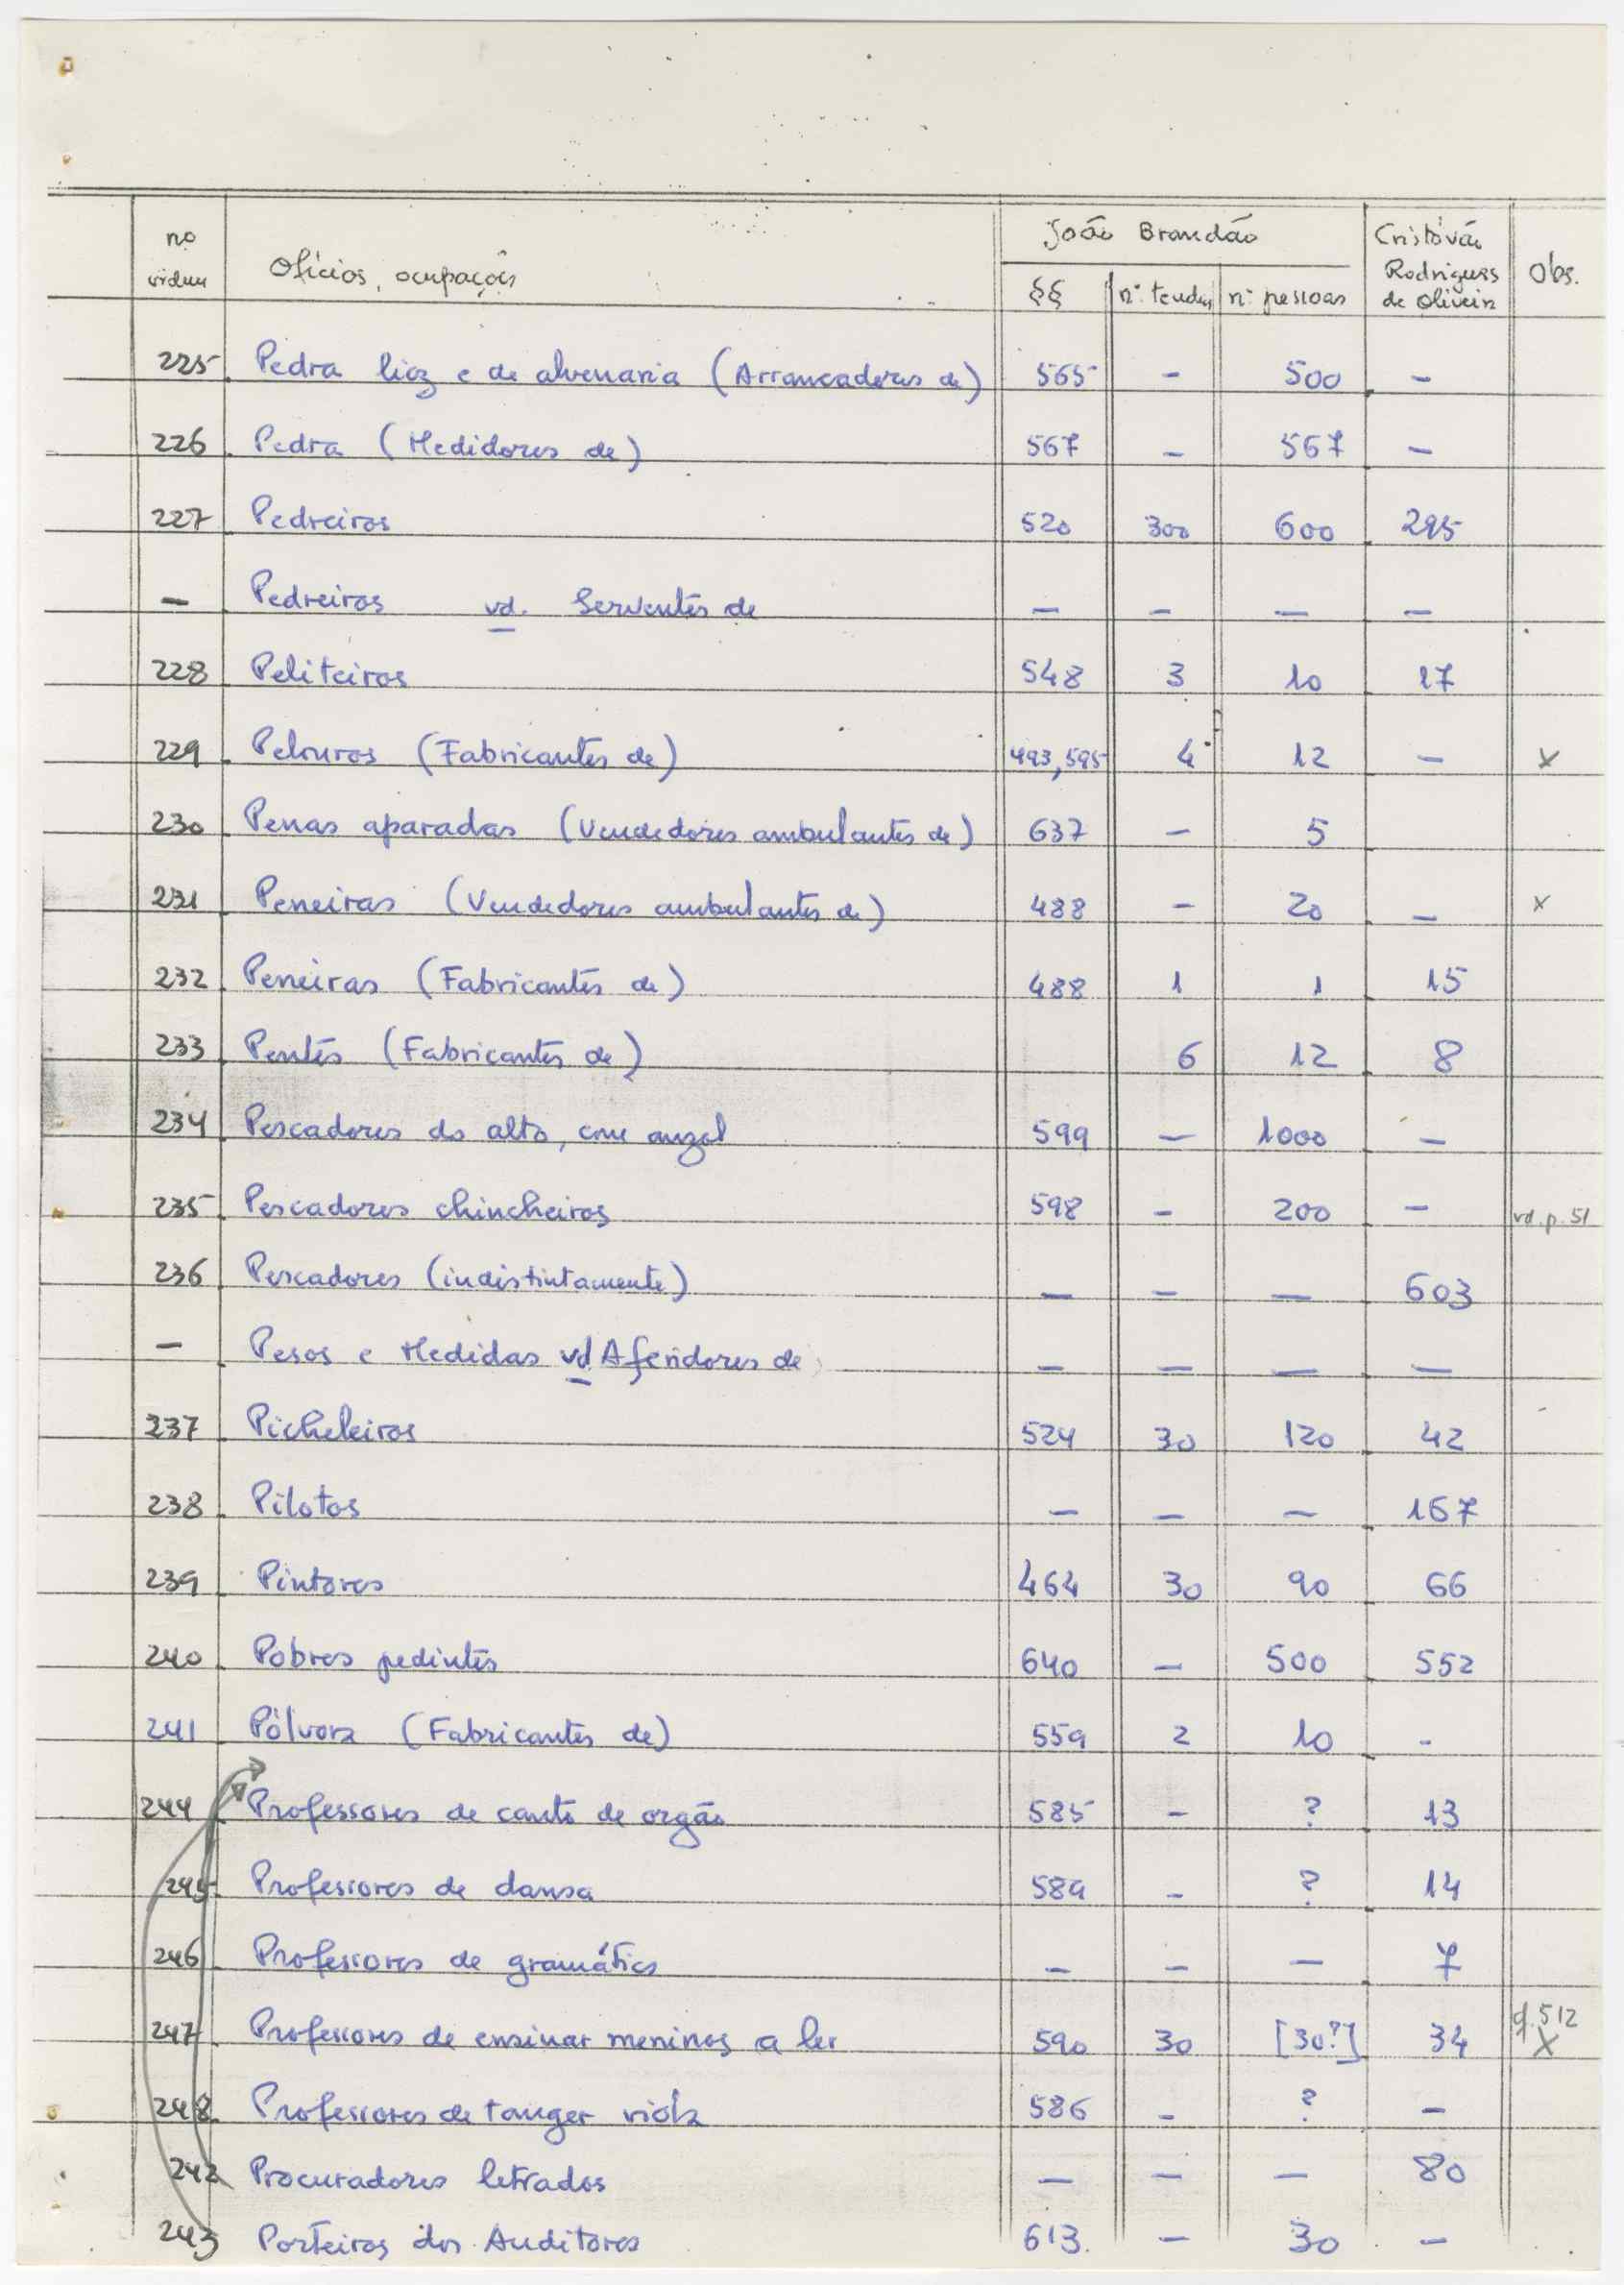 nº ordem | Ofícios, ocupações | João Brandão | Cristóvão Rodrigues de Oliveira | Obs.
§§ | nº tendas | nº pessoas
225 Pedra lioz e de alvenaria (Arrancadores de) 565 - 500 -
226 Pedra (Medidores de) 567 - 567 -
227 Pedreiros 520 300 600 295
- Pedreiros vd. Serventes de - - - -
228 Peliteiros 548 3 10 17
229 Pelouros (Fabricantes de) 493,595 4 12 - x
230 Penas aparadas (Vendedores ambulantes de) 637 - 5
231 Peneiras (Vendedores ambulantes de) 488 - 20 - x
232 Peneiras (Fabricantes de) 488 1 1 15
233 Pentes (Fabricantes de) 6 12 8
234 Pescadores do alto, com anzol 599 - 1000 -
235 Pescadores chincheiros 598 - 200 - vd. p. 51
236 Pescadores (indistintamente) - - - 603
- Pesos e Medidas vd Aferidores de - - - -
237 Picheleiros 524 30 120 42
238 Pilotos - - - 167
239 Pintores 464 30 90 66
240 Pobres pedintes 640 - 500 552
241 Pólvora (Fabricantes de) 559 2 10 -
244 Professores de canto de orgão 585 - ? 13
245 Professores de dansa 589 - ? 14
246 Professores de gramática - - - 7
247 Professores de ensinar meninos a ler 590 30 [30?] 34 q. 512 X
248 Professores de tanger viola 586 - ? -
242 Procuradores letrados - - - 80
243 Porteiros dos Auditores 613. - 30 -